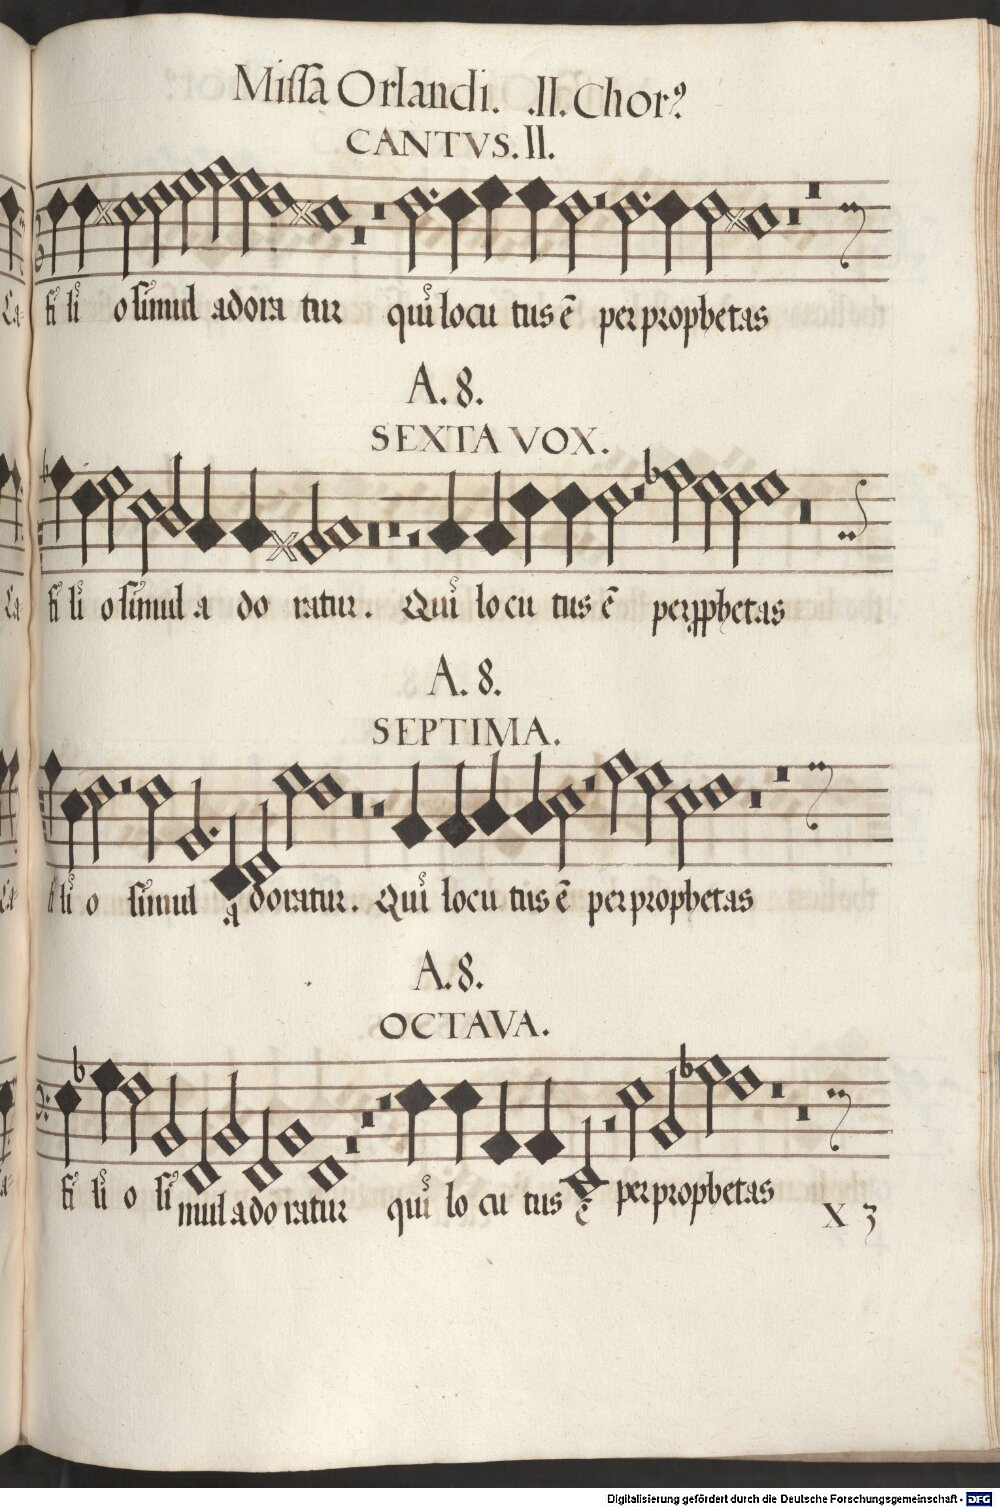 Missa Orlandi. .II. Chor⁹
CANTVS. II.
fi li o simul adora tur qui locu tus ē per prophetas
A. 8.
SEXTA VOX.
fi li o simul a do ratur. Qui locu tus ē per pphetas
A. 8.
SEPTIMA.
li o simul a doratur. Qui locu tus ē per prophetas
A. 8.
OCTAVA.
fi li o si mul ado ratur qui lo cu tus ē per prophetas
X 3
Digitalisierung gefördert durch die Deutsche Forschungsgemeinschaft - DFG